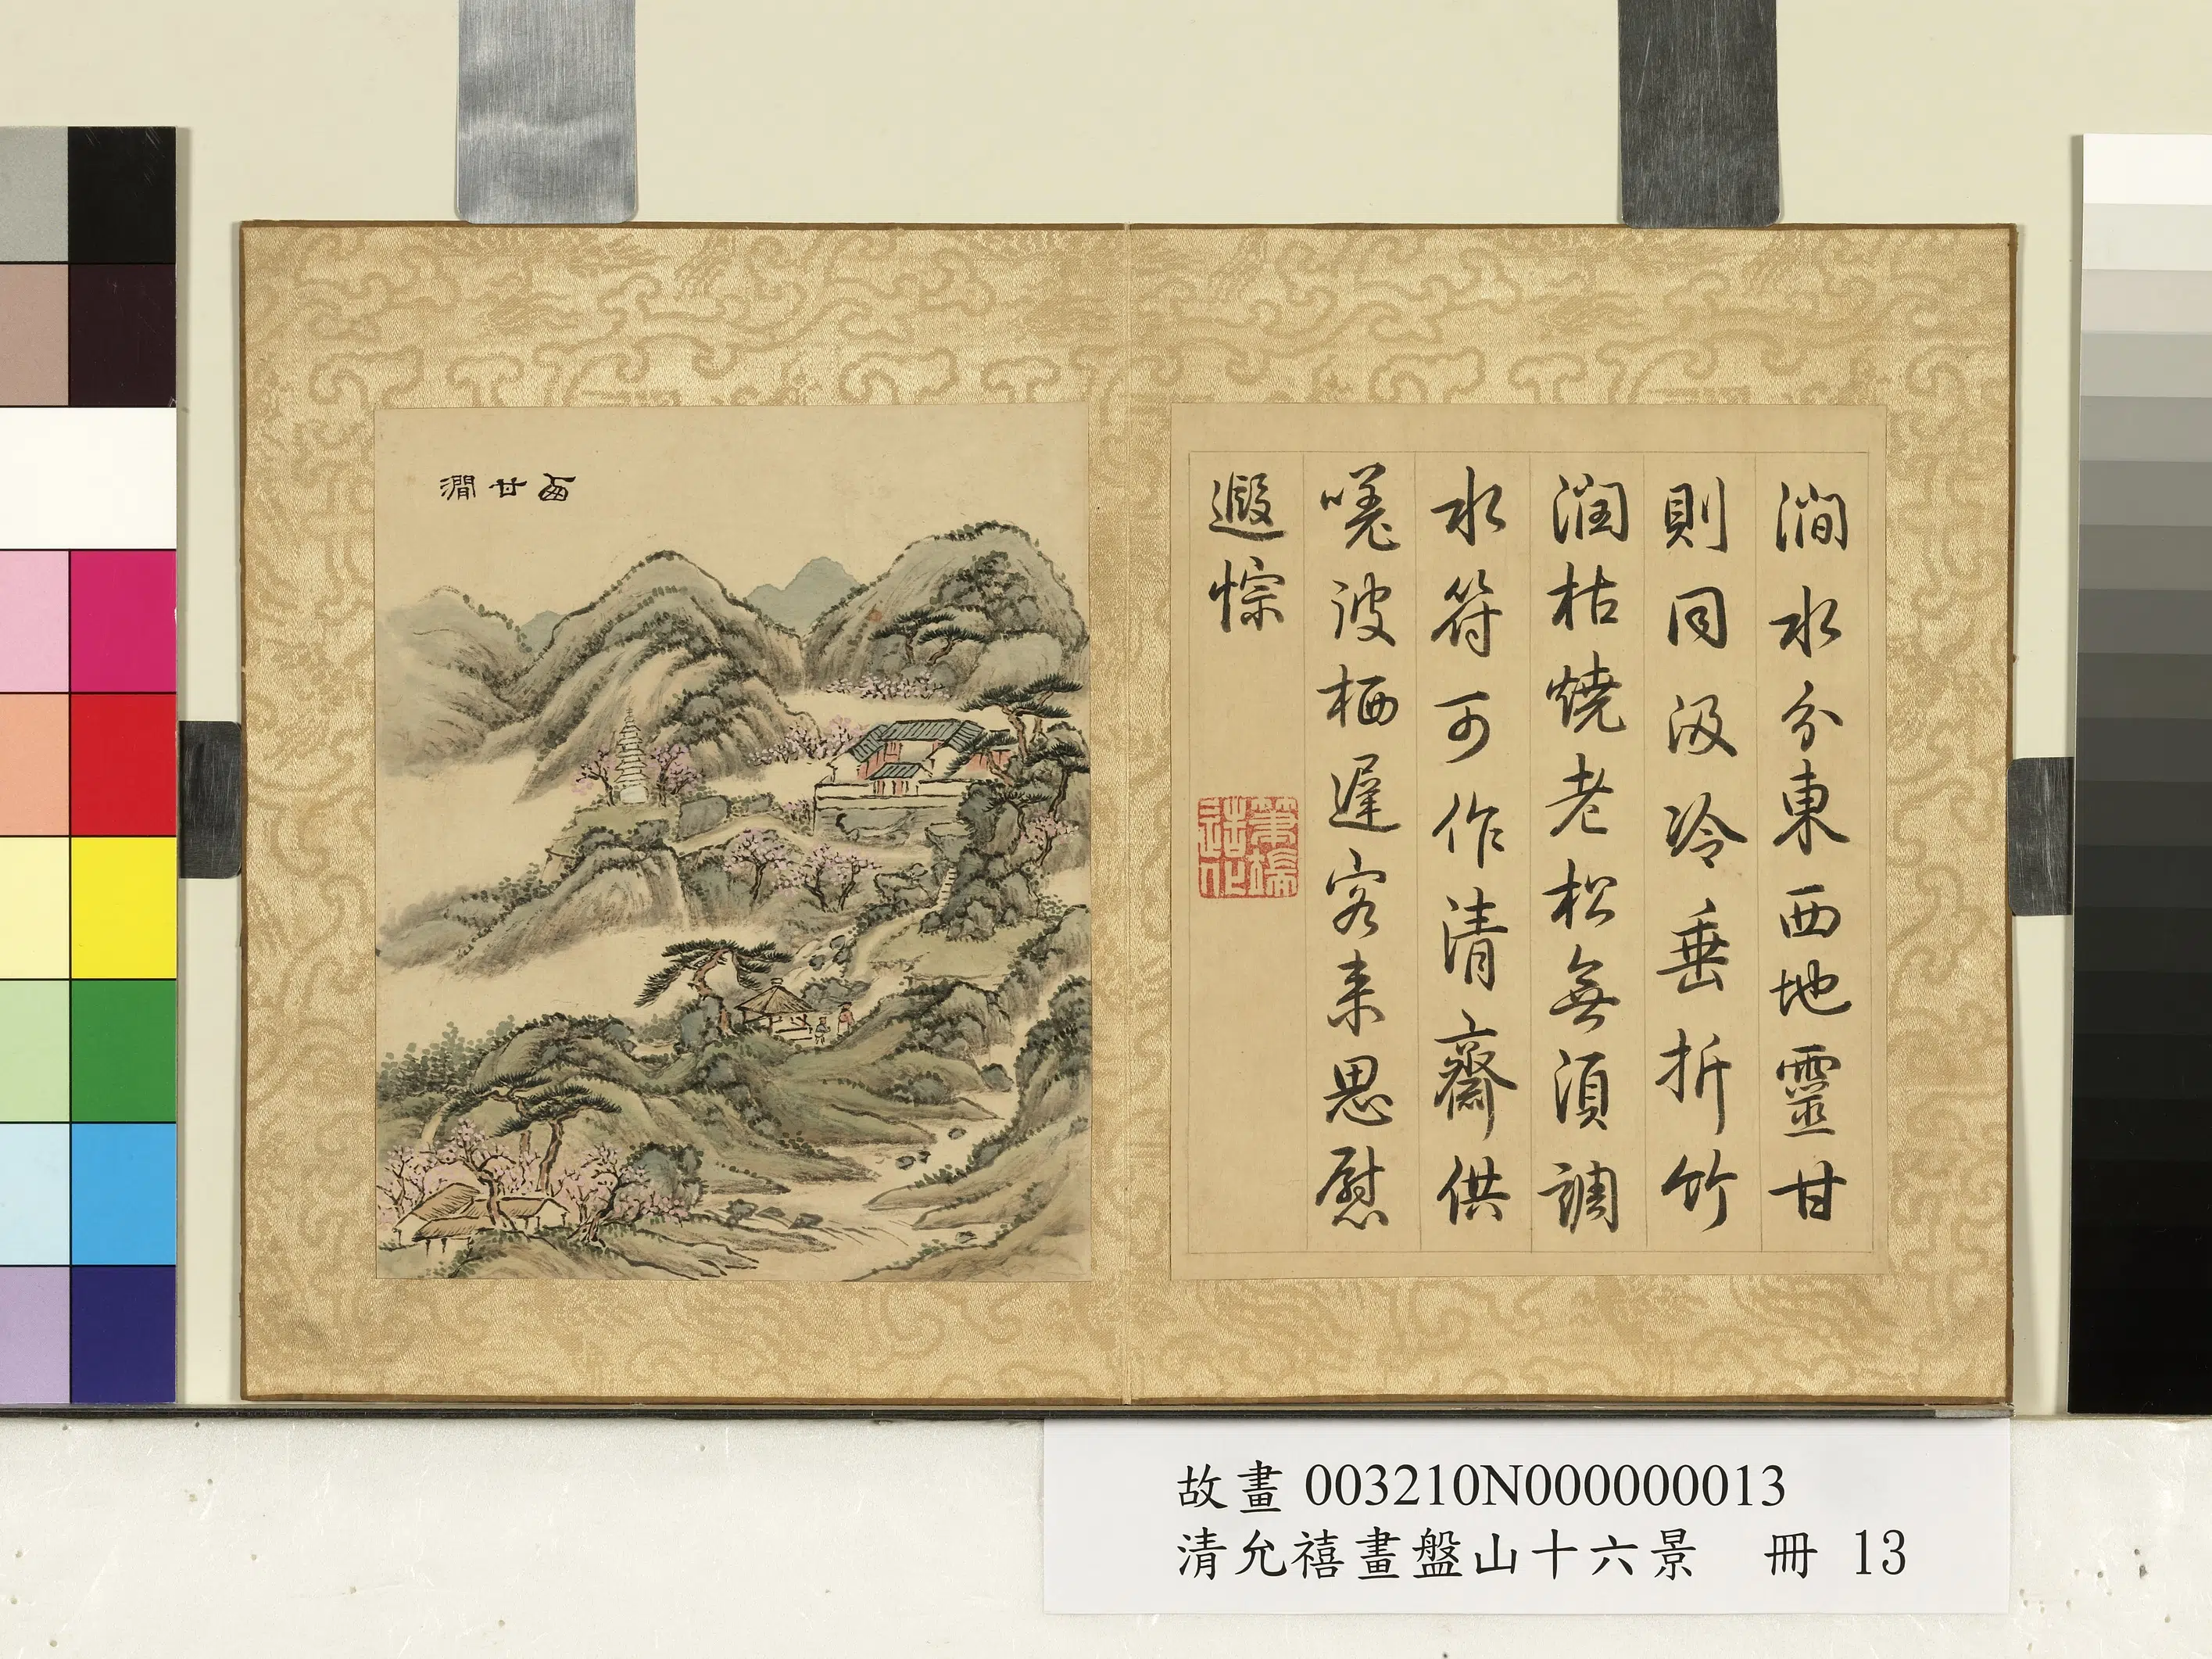 西甘澗
澗水分東西地靈甘
則同汲冷垂折竹
潤枯燒老松無須調
水符可作清齋供
嗟彼栖遲客来思慰
遐悰
筆端造化
故畫 003210N000000013
清允禧畫盤山十六景 冊 13